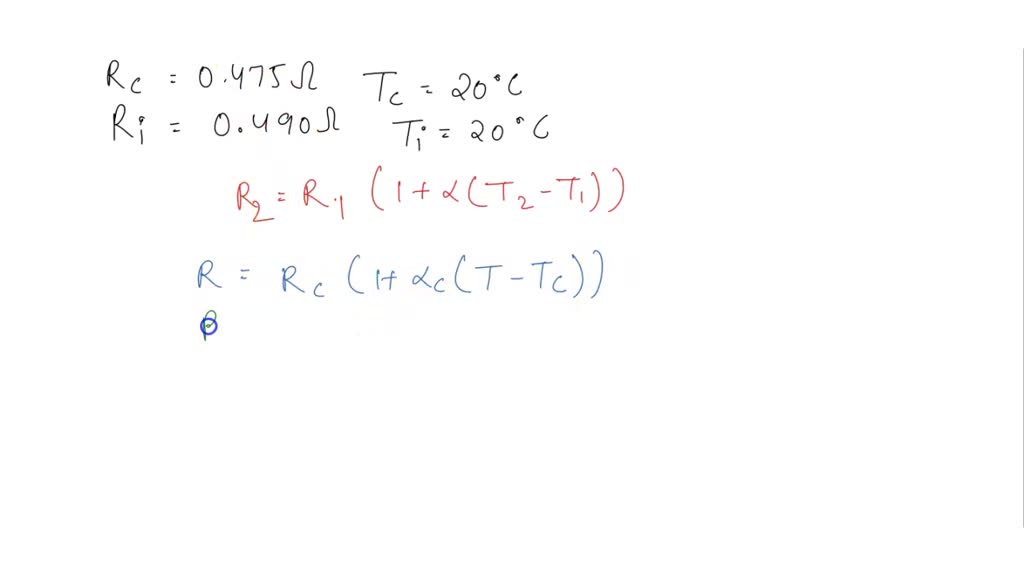 Rc = 0.475Ω Tc = 20°C
Ri = 0.490Ω Ti = 20°C
R2 = R1 (1 + α(T2 - T1))
R = Rc (1 + αc(T - Tc))